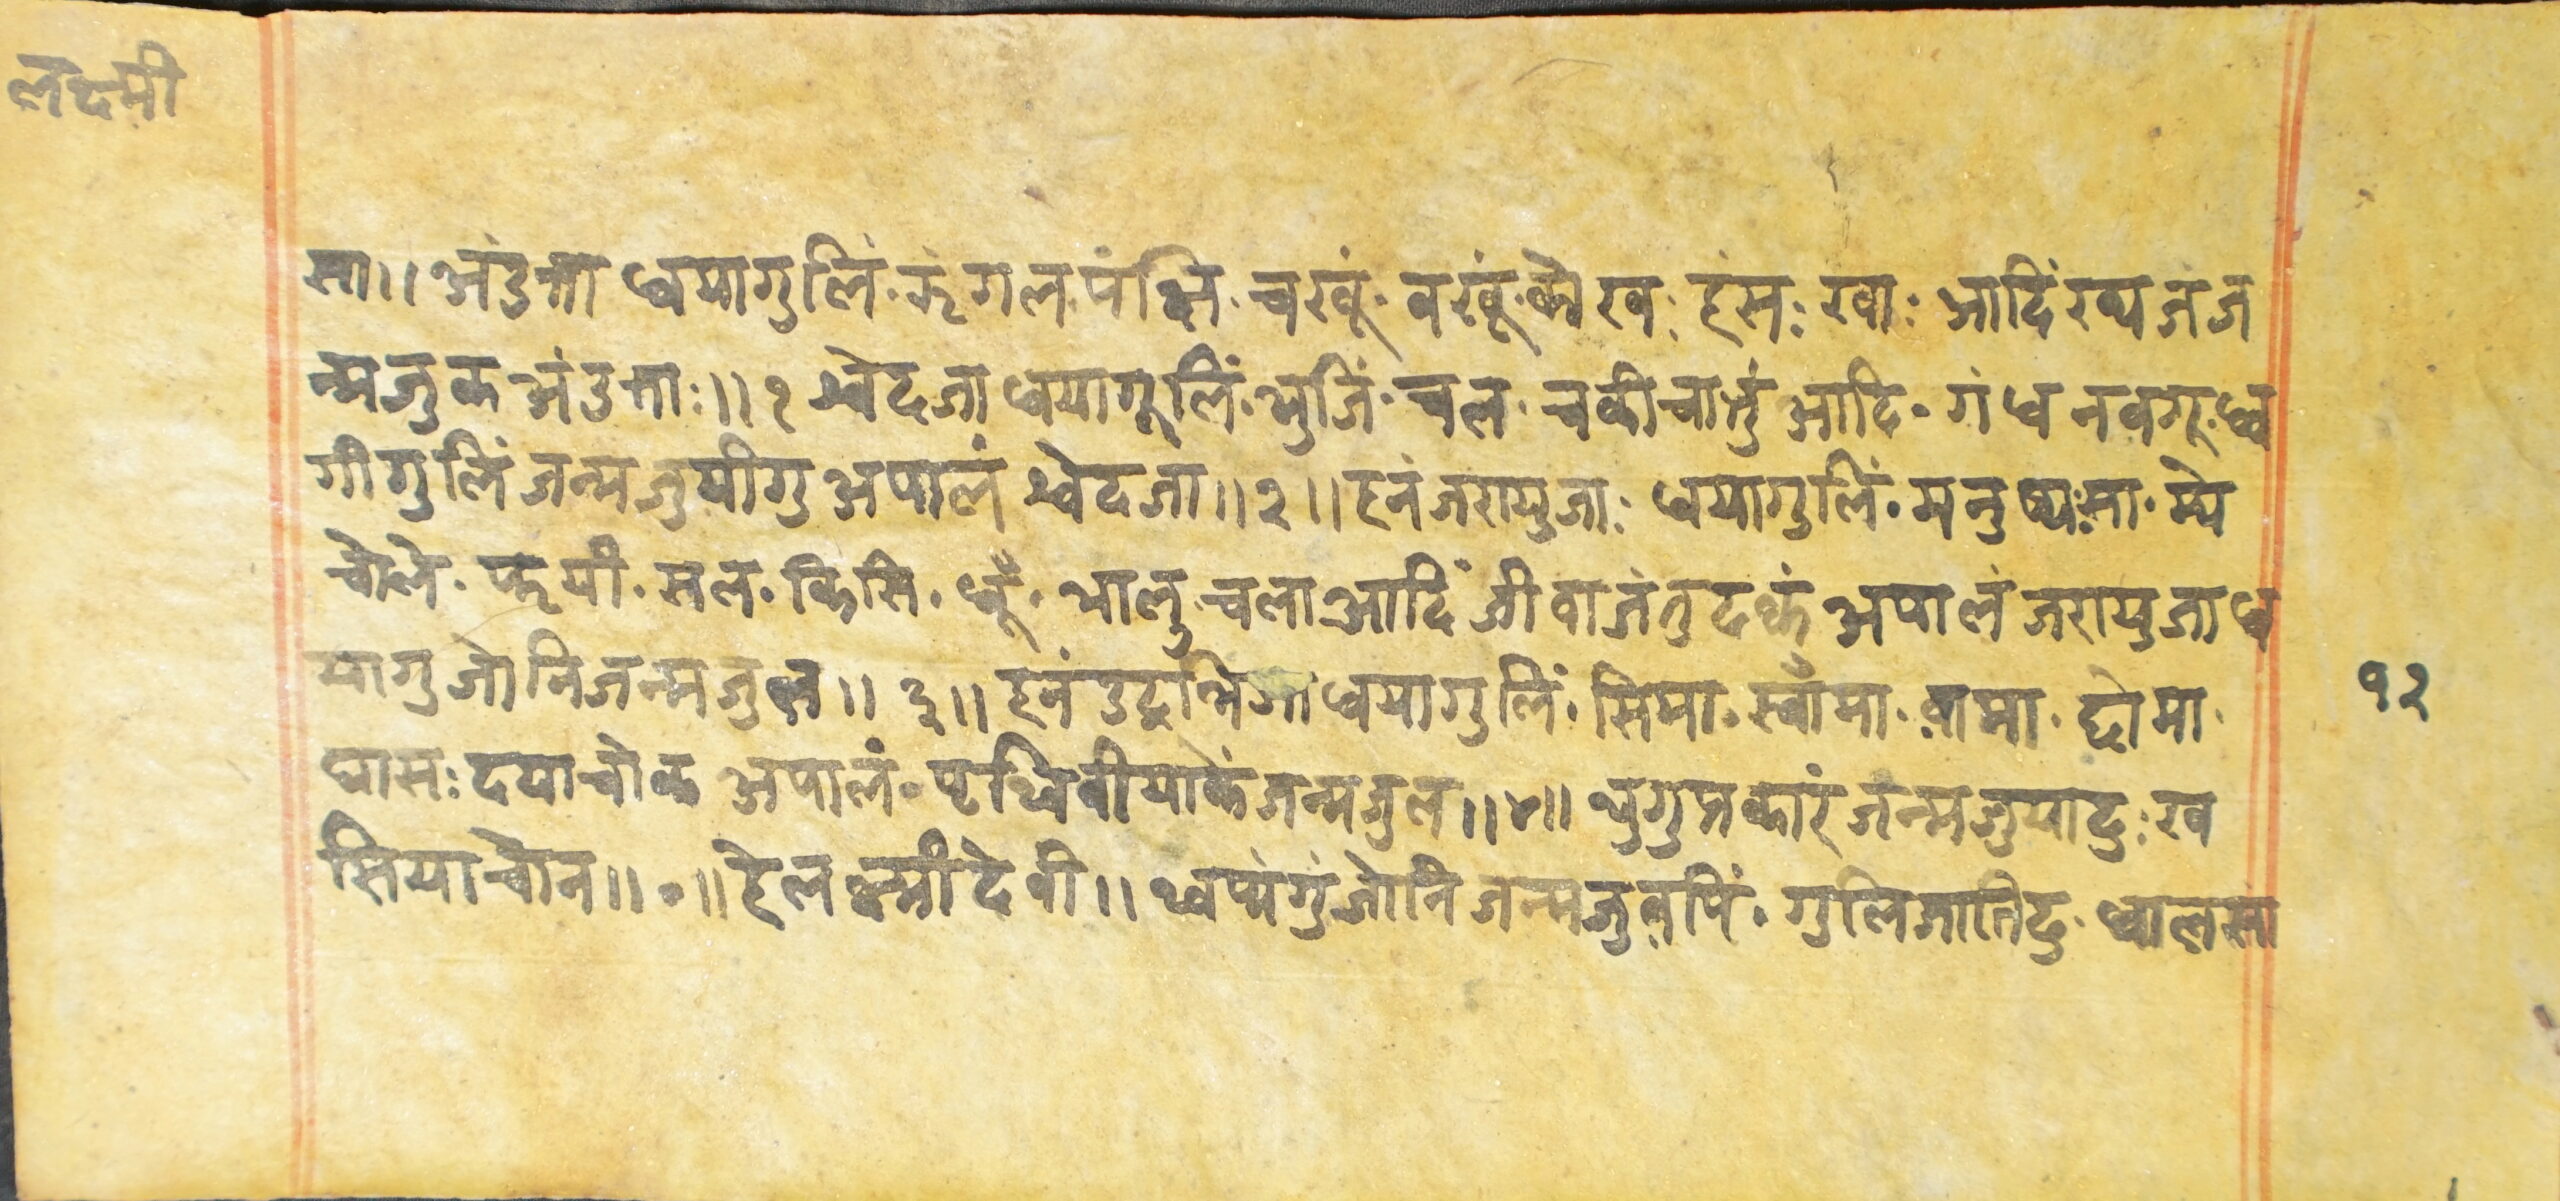 लक्ष्मी
सा॥ अंडजा धयागुलिं· झंगल पंक्षि· चखुं· बखुं· कोख: हंस: खा: आदिं ख्यनं ज
न्मजुक अंडजा:॥१ श्वेदजा धयागूलिं· भुजिं· चल· चकीचातुं आदि· गंध नवगू· ध्व
गीगुलिं जन्मजुयीगु अपालं श्वेदजा॥२॥ हनं जरायुजा: धयागुलिं· मनुष्य: सा· म्ये
चोले· फ्रयी· सल· किसि· धूँ· भालु· चला आदिं जीवाजंतु दक्वं अपालं जरायुजा ध
यागु जोनि जन्मजुल॥ ३॥ हनं उद्भिजा धयागुलिं· सिमा· स्वाँमा· वामा· ह्वोमा·
घास: दयाचोक अपालं· पृथिवीयाकें जन्मजुल॥४॥ थुगु प्रकारं जन्मजुया दु:ख
सिया चोन॥०॥ हे लक्ष्मी देवी॥ थ्वप्यंगुं जोनि जन्मजुवपिं· गुलि जाति दु· धालसा
१२